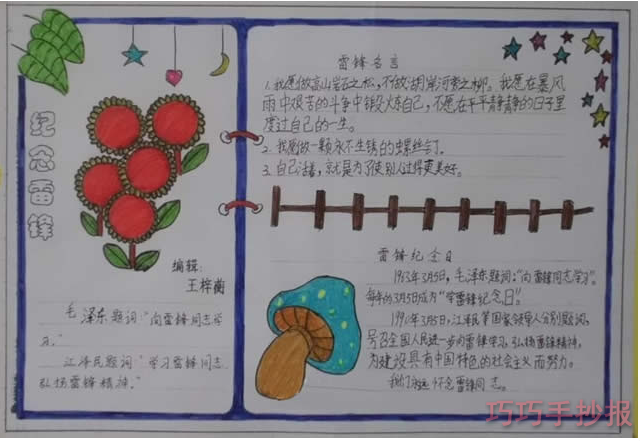 纪念雷锋
编辑:
王梓菡
毛泽东题词:"向雷锋同志学
习."
江泽民题词:"学习雷锋同志
弘扬雷锋精神."
雷锋名言
1.我愿做高山岩石之松,不做湖岸河旁之柳。我愿在暴风
雨中艰苦的斗争中锻炼自己,不愿在平平静静的日子里
度过自己的一生。
2.我愿做一颗永不生锈的螺丝钉。
3.自己活着,就是为了使别人过得更美好。
雷锋纪念日
1963年3月5日,毛泽东题词:"向雷锋同志学习"。
每年的3月5日成为"学雷锋纪念日"。
1990年3月5日,江泽民等国家领导人分别题词,
号召全国人民进一步向雷锋学习,弘扬雷锋精神,
为建设具有中国特色的社会主义而努力。
我们永远怀念雷锋同志。
巧巧手抄报